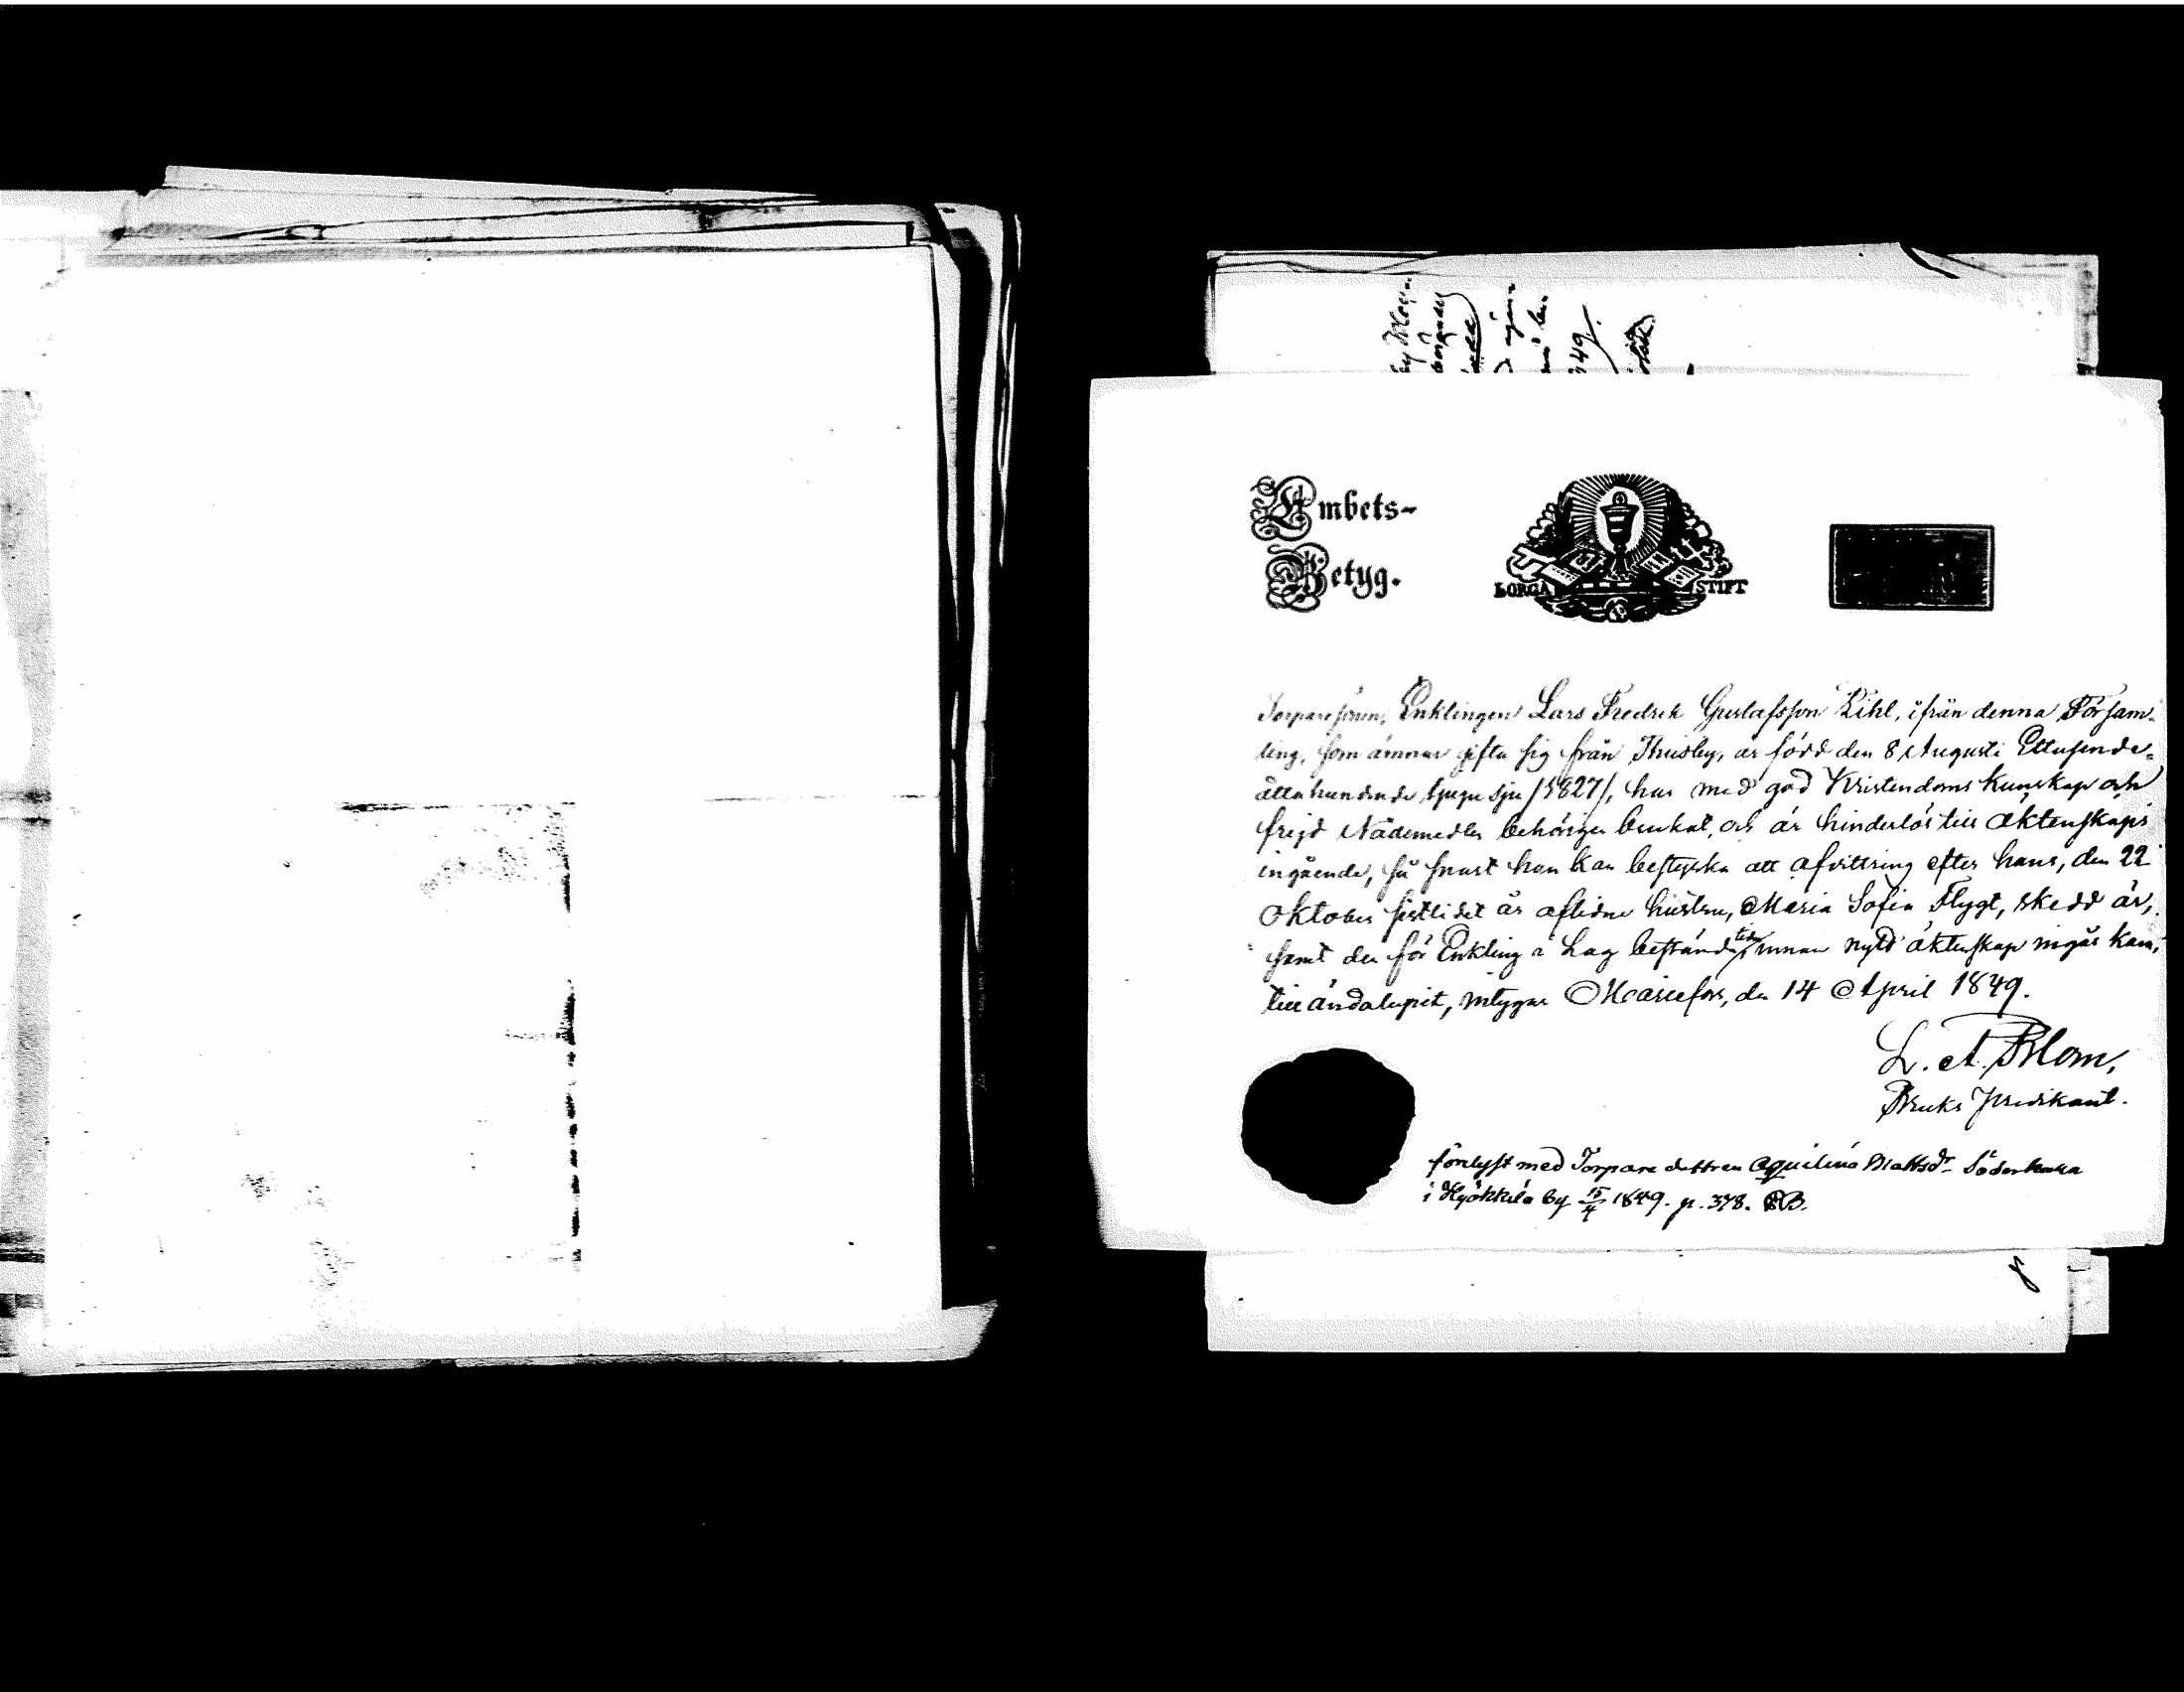 by
1849.
Ambets-
Betyg.
BORGÅ STIFT
Torparesonen, Enklingen Lars Fredrik Gustafsson Lihl, ifrån denna Försam-
ling, som ämnar gifta sig från Thusby, är född den 8 Augusti Ettusende-
åttahundrade tjugu sju /1827/, har med god Kristendoms kunskap och
frejd Nådemedlen behörigen brukat, och är hinderlös till äktenskaps
ingående, så snart han kan bestyrka att afvittring efter hans, den 22
Oktober sistlidet år aflidne hustru, Maria Sofia Flygt, skedd är,
samt den för Enkling i Lag bestämda tiden, innan nytt äktenskap ingås kan,
till ändalupit, intygar Mariefors, den 14 April 1849.
L. A. Blom,
Bruks Predikant.
förelyst med Torpare dottren Aquilina Mattsdr
i Hyökkälä by 15/4 1849. p. 378.